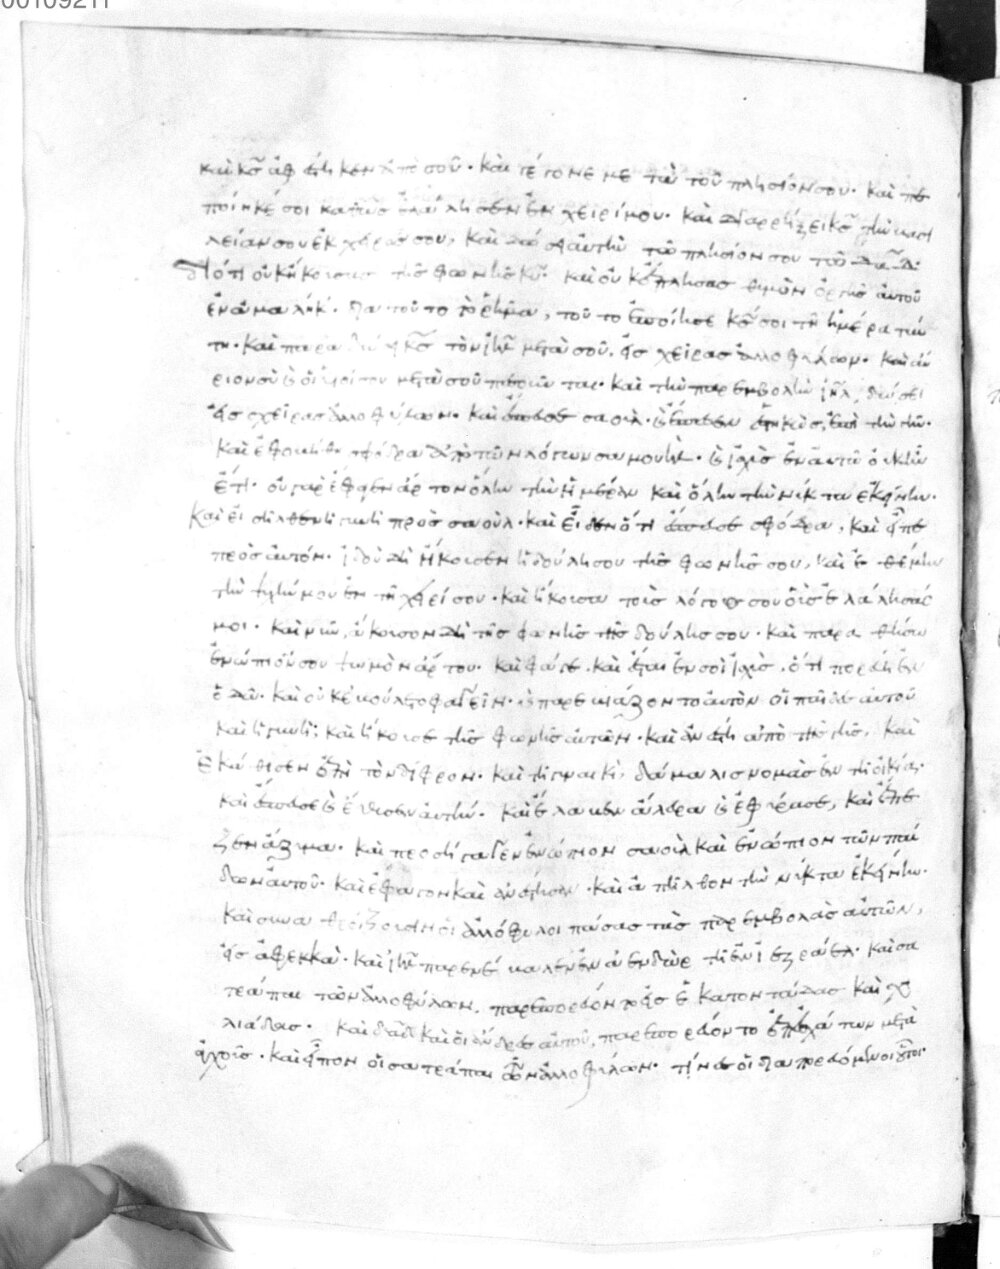 00109211
καὶ κ̅ς ἀφέστηκεν ἀπὸ σοῦ· καὶ γέγονε μετὰ τοῦ πλησίον σου· καὶ πε
ποίηκέ σοι καθὼς ἐλάλησεν ἐν χειρί μου· καὶ διαρρήξει κ̅ς τὴν βασι
λείαν σου ἐκ χειρός σου, καὶ δώσει αὐτὴν τῶ πλησίον σου τῶ δα̅δ·
διότι οὐκ ἤκουσας τῆς φωνῆς κ̅υ· καὶ οὐκ ἐπλησας θυμὸν ὀργῆς αὐτοῦ
ἐν ἀμαλήκ· διὰ τοῦτο τὸ ῥῆμα, τοῦτο ἐποίησε κ̅ς σοι τῆ ἡμέρα ταύ
τη· καὶ παραδώσει κ̅ς τὸν ι̅η̅λ μετὰ σοῦ, εἰς χεῖρας ἀλλοφύλων· καὶ αὔ
ριον σὺ καὶ οἱ υἱοί σου μετὰ σοῦ πεσοῦνται· καὶ τὴν παρεμβολὴν ι̅η̅λ, δώσει
εἰς χεῖρας ἀλλοφύλων· καὶ ἔσπευσε σαουλ· καὶ ἔπεσεν ἑστηκὼς, ἐπὶ τὴν γῆν·
καὶ ἐφοβήθη σφόδρα ἀπὸ τῶν λόγων σαμουήλ· καὶ ἰσχὺς ἐν αὐτῶ οὐκ ἦν
ἔτι· οὐ γὰρ ἔφαγεν ἄρτον ὅλην τὴν ἡμέραν καὶ ὅλην τὴν νύκτα ἐκείνην·
καὶ εἰσῆλθεν ἡ γυνὴ πρὸς σαούλ· καὶ εἶδεν ὅτι ἔσπευσε σφόδρα, καὶ εἶπε
πρὸς αὐτόν· ἰδοὺ δὴ ἤκουσεν ἡ δούλη σου τῆς φωνῆς σου, καὶ ἐθέμην
τὴν ψυχήν μου ἐν τῆ χειρί σου· καὶ ἤκουσα τοὺς λόγους σου οὓς ἐλάλησάς
μοι· καὶ νῦν, ἄκουσον δὴ τῆς φωνῆς τῆς δούλης σου· καὶ παραθήσω
ἐνώπιόν σου ψωμὸν ἄρτου· καὶ φάγε· καὶ ἔσται ἐν σοὶ ἰσχὺς, ὅτι πορεύη ἐν
ὁδῶ· καὶ οὐκ ἐβούλετο φαγεῖν· καὶ παρεβιάζοντο αὐτὸν οἱ παῖδες αὐτοῦ
καὶ ἡ γυνή· καὶ ἤκουσε τῆς φωνῆς αὐτῶν· καὶ ἀνέστη ἀπὸ τῆς γῆς, καὶ
ἐκάθισεν ἐπὶ τὸν δίφρον· καὶ τῆ γυναικὶ, δάμαλις νομὰς ἐν τῆ οἰκία·
καὶ ἔσπευσε καὶ ἔθυσεν αὐτήν· καὶ ἔλαβεν ἄλευρα καὶ ἐφύρασε, καὶ ἔπε
ψεν ἄζυμα· καὶ προσήγαγεν ἐνώπιον σαοὺλ καὶ ἐνώπιον τῶν παί
δων αὐτοῦ· καὶ ἔφαγον καὶ ἀνέστησαν· καὶ ἀπῆλθον τὴν νύκτα ἐκείνην·
καὶ συναθροίζουσιν οἱ ἀλλόφυλοι πάσας τὰς παρεμβολὰς αὐτῶν,
εἰς ἀφεκκὰ· καὶ ι̅η̅λ παρενέβαλεν ἐν ἀενδὼρ τῆ ἐν ἰεζράελ· καὶ σα
τράπαι τῶν ἀλλοφύλων, παρεπορεύοντο εἰς ἑκατοντάδας καὶ χι
λιάδας· καὶ δα̅δ καὶ οἱ ἄνδρες αὐτοῦ, παρεπορεύοντο ἐπ' ἐσχάτων μετὰ
ἀγχοῦς· καὶ εἶπον οἱ σατράπαι τῶν ἀλλοφύλων· τίνες οἱ διαπορευόμενοι οὗτοι·